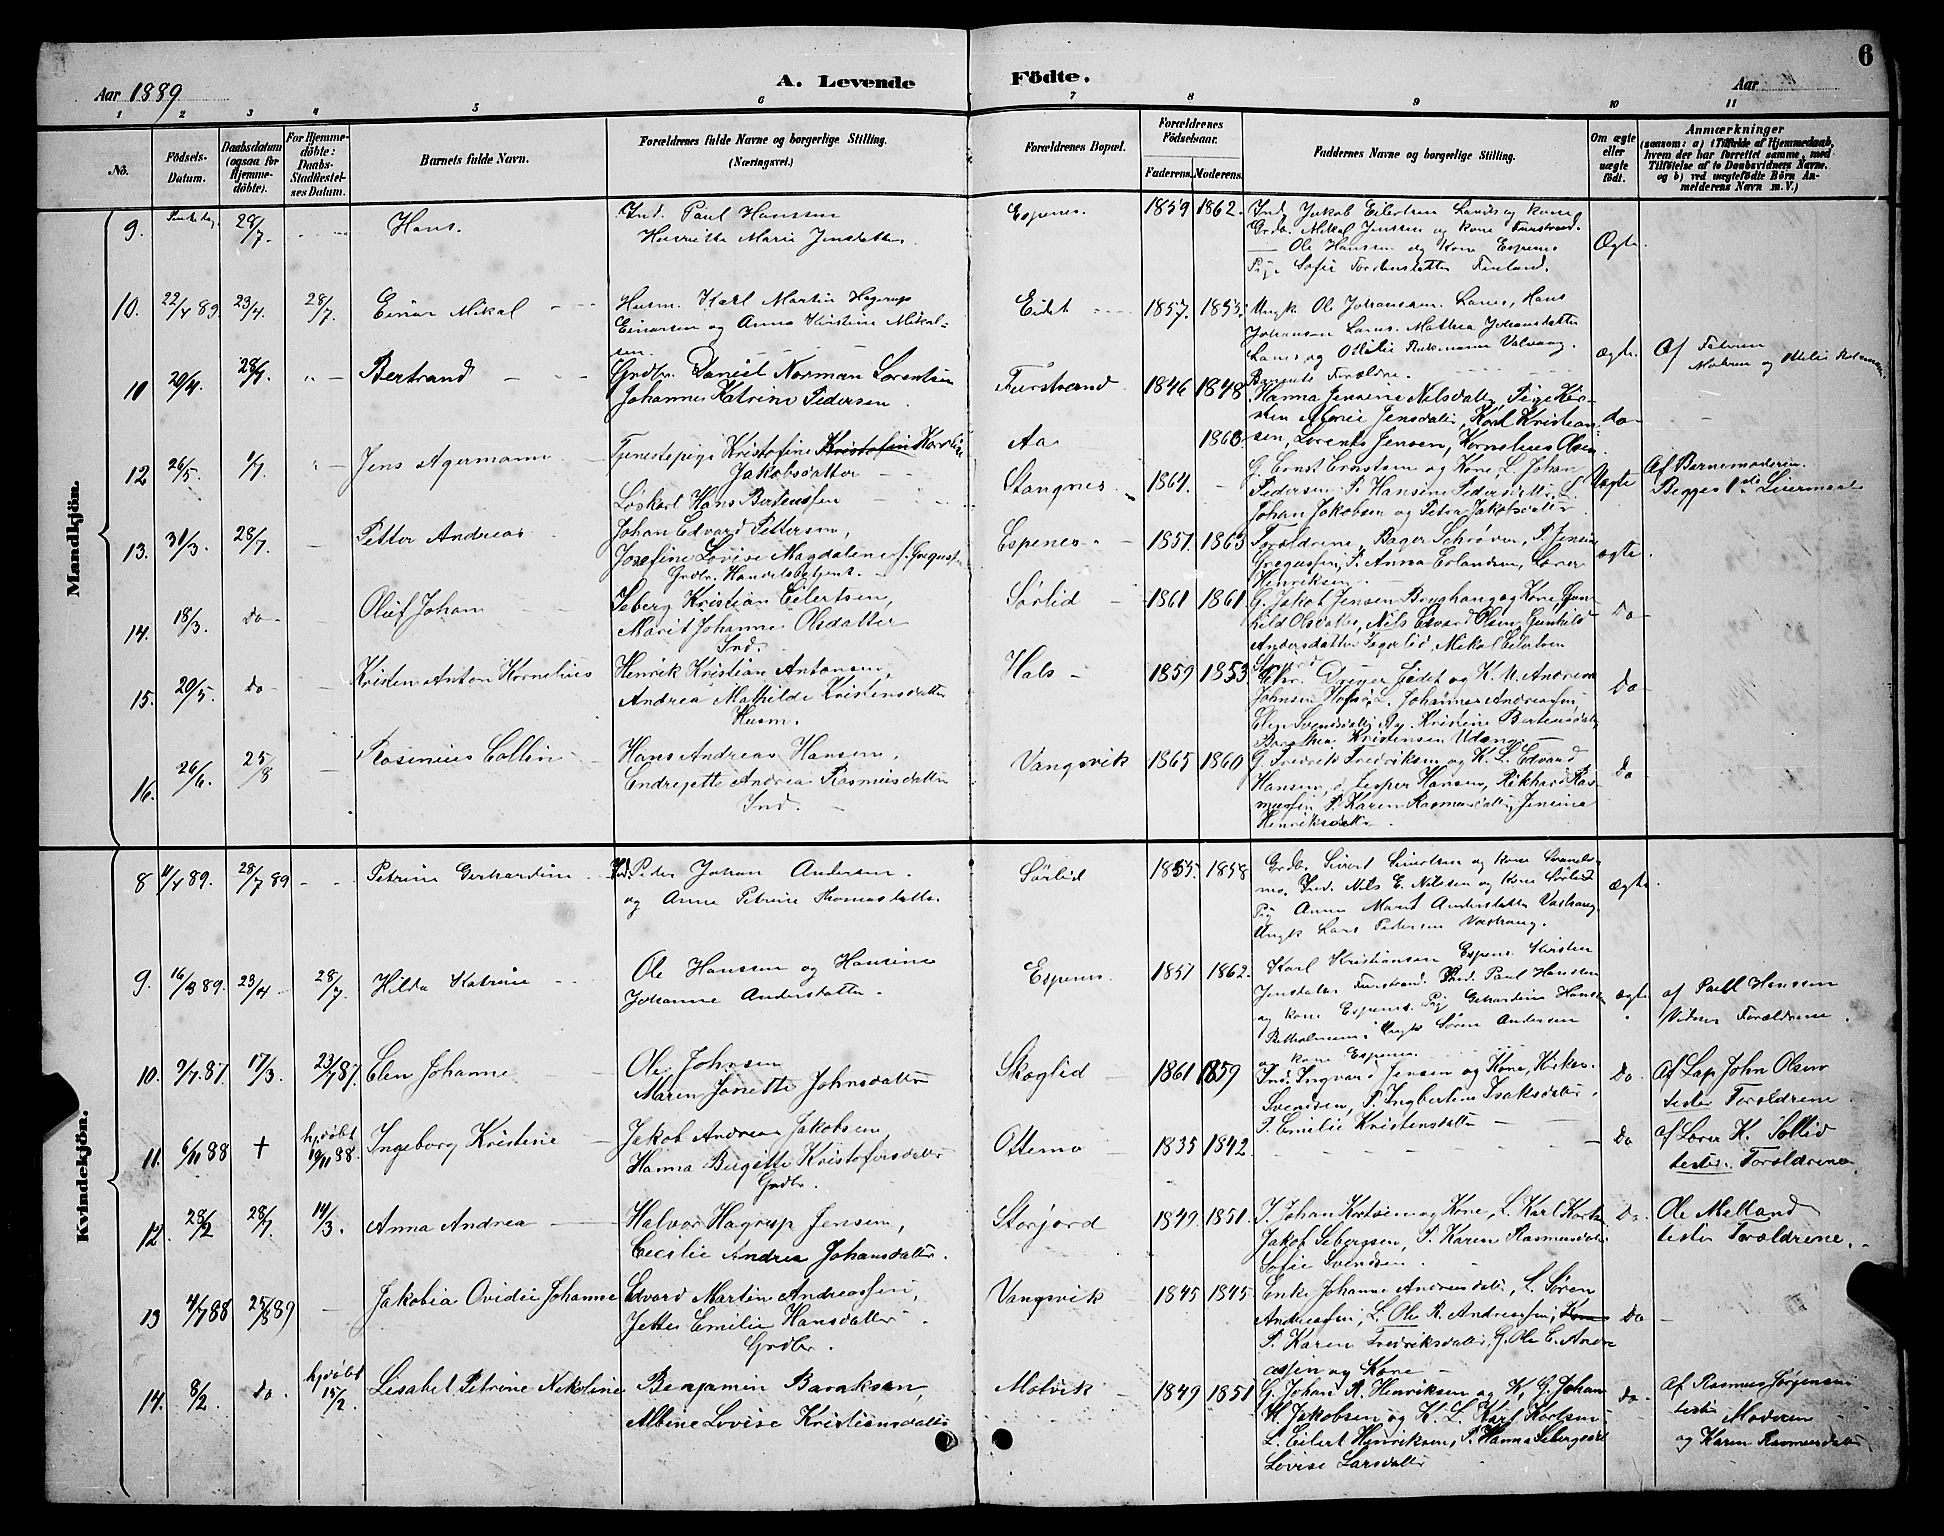 6
A. Levende Födte.
Aar 1889
Aar
1 2 3 4 5 6 7 8 9 10 11
No.
Födsels-Datum.
Daabsdatum (ogsaa for Hjemmedöbte).
For Hjemmedöbte: Daabs-Stadfæstelses Datum.
Barnets fulde Navn.
Forældrenes fulde Navne og borgerlige Stilling. (Næringsvei.)
Forældrenes Bopæl.
Forældrenes Födselsaar.
Faderens. Moderens.
Faddernes Navne og borgerlige Stilling.
Om ægte eller uægte födt.
Anmærkninger
(saasom: a) i Tilfælde af Hjemmedaab, hvem der har forrettet samme, med Tilföielse af to Daabsvidners Navne, og b) ved uægtefödte Börn Anmelderens Navn m. V.)
Mandkjön.
9. 28/7 Hans.
Ind. Paul Hanssen
Henriette Marie Jensdatter
Espenes 1859 1862.
Ind. Jakob Eilertsen og kone
Grdb. Mikal Jenssen og kone Furstrand.
Ole Hanssen og Kone Espenes
Pige Sofie Torstensdatter Finland.
Ægte
10. 22/4 89. 23/4. 28/7. Einar Mikal
Husm. Karl Martin Hagerup
Einarsen og Anna Kirstine Mikalsen.
Eidet 1857. 1855.
Ungk. Ole Johanssen Lanes, Hans
Johansen Lanes. Mathea Johansdatter
Lanes og Ottilie
Barnets Forældre.
ægte. Af Faderen
Moderen og
11 20/4. 28/7. Bertrand
Grdbr. Daniel Norman Lorentsen
Johanne Katrine Pedersen
Furstrand 1846 1848
Hanna Jensine Nilsdatter, Pige Kirsten
Marie Jensdatter, Karl Kristiansen,
Lorents Jensen, Kornelius Olsen
do
12 26/5. 1/7. Jens Agermann
Tjenestepige Kristofine Kristofin Karoline
Jakobsdatter
Løskarl Hans Berteussen
Aa 1863
Stangnes 1864.
G. Ernst Ernstsen og Kone, L. Johan
Pedersen, P. Hansine Pedersdatter, L.
Johan Jakobsen og Petra Jakobsdatter
Uægte Af Barnemoderen.
Begges 1ste Leiermaal
13. 31/3. 28/7. Petter Andreas
Johan Edvard Pettersen,
Josefine Lovise Magdalene f. Gregusen
Grdbr. Handelsbetjent.
Espenes 1857. 1863
Forældrene, Bager Schrøver, P. Jensine
Gregussen, P. Anna Erlandsen, Lærer
Henriksen.
ægte
14. 18/3. do Oluf Johan
Seberg Kristian Eilertsen,
Marit Johanne Olsdatter
Ind.
Sørlid 1861 1861
G. Jakob Jensen og Kone, Gunhild
Olsdatter, Nils Edvard Olsen, Gunhild
Andersdatter, Mikal Eilertsen
Do
15. 20/5. do Kristen Anton Kornelius
Henrik Kristian Antonsen,
Andrea Mathilde Kristensdatter
Husm.
Hals 1859 1853
Dreyer Eidet og K. U. Andreas
Johnsen, L. Johannes Andreassen
Elen Svensdatter Aa, Kristine Berteusdatter,
Kristensen
Do
16. 26/6. 25/8 Rasmus Collin
Hans Andreas Hansen,
Endregette Andrea Rasmusdatter
Ind.
Vangsvik 1865 1860
G. Fredrik Fredriksen og K. L. Edvard
Hansen, Jesper Hansen, Rikhard Rasmussen
P. Karen Rasmusdatter, Jensine
Henriksdatter
Do
Kvindekjön.
8 11/4 89. 28/7 89 Petrine Gerhardine
Ind. Peder Johan Andersen
og Anne Petrine Thomasdatter
Sørlid 1855. 1858
Grdb. Sivert Sivertsen og kone
Ind. Nils E. Nilssen og Kone Sørlid
Pig. Anne Marit Andersdatter
Ungk. Lars Pedersen
ægte
9. 16/3 89. 23/4 28/7. Hilda Katrine
Ole Hanssen og Hansine
Johanne Andersdatter
Espenes. 1857 1862.
Karl Kristiansen Espenes. Kirsten
Jensdatter Furstrand. Ind. Paul Hanssen
og kone Espenes. Pig Gerhardine Hansen
Ungk. Søren Andersen
og kone Espenes
ægte af Paul Hanssen
Vidner Forældrene.
10. 9/7. 87. 17/3. 23/7 87. Elen Johanne
Ole Johnsen
Maren Jonette Johnsdatter
Skoglid 1861 1859
Ind. Ingvard Jensen og Kone,
Svendsen, P. Ingberline Isaksdatter,
P. Emelie Kristensdatter
Do Af Lap John Olsen
tester Forældrene.
11. 6/11 88 + hjdøbt 19/11 88. Ingeborg Kristine
Jakob Andreas Jakobsen
Hanna Birgitte Kristofersdatter
Grdbr.
Ottemo 1835 1842
Do af Lærer K. Sollid
tester. Forældrene
12. 28/2 28/7. 14/3. Anna Andrea
Halvor Hagerup Jensen,
Cecilie Andrea Johansdatter.
Storjord 1849 1851.
J. Johan Kortsen og Kone, L. Karl Kortsen
Jakob Sebergsen, P. Karen Rasmusdatter
Sofie Svendsen
Do. Ole Melland
tester Forældrene.
13 4/7 88 25/8 89 Jakobia Ovidie Johanne
Edvard Martin Andreassen,
Jette Emelie Hansdatter
Grdbr.
Vangsvik 1845 1845
Enke Johanne Andreasdatter, L. Søren
Andreassen, L. Ole R. Andreassen,
P. Karen Fredriksdatter, G. Ole E. Andreassen
og Kone
Do
14. 8/2. do hjdøbt 15/2. Lisabet Petrine Nikoline
Benjamin Baraksen,
Albine Lovise Kristiansdatter
Molvik 1849 1851
G. Johan R. Henriksen og K. G. Johan
H. Jakobsen og K. L. Karl Kortsen
L. Eilert Henriksen, P. Hanna
Lovise Larsdatter
do Af Rasmus Jørgensen
testis Moderen
og Karen Rasmusdatter